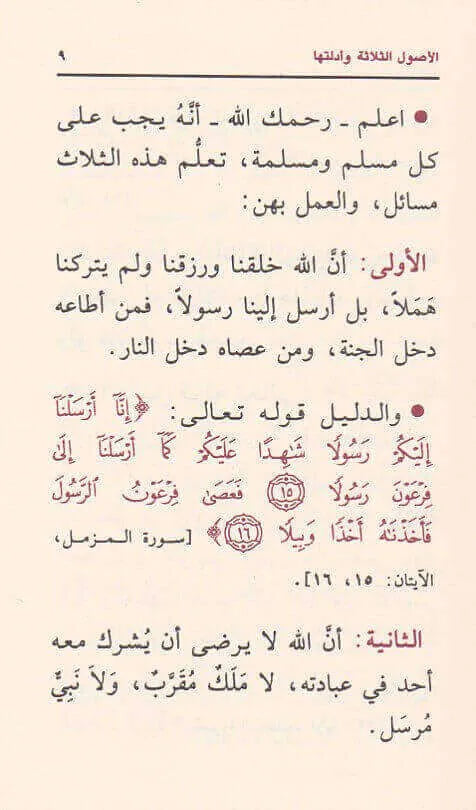 الأصول الثلاثة وأدلتها ٩
• اعلم ـ رحمك الله ـ أنَّهُ يجب على
كل مسلم ومسلمة، تعلُّم هذه الثلاث
مسائل، والعمل بهن:
الأولى: أنَّ الله خلقنا ورزقنا ولم يتركنا
هَمَلاً، بل أرسل إلينا رسولاً، فمن أطاعه
دخل الجنة، ومن عصاه دخل النار.
• والدليل قوله تعالى: ﴿إِنَّآ أَرْسَلْنَآ
إِلَيْكُمْ رَسُولًا شَٰهِدًا عَلَيْكُمْ كَمَآ أَرْسَلْنَآ إِلَىٰ
فِرْعَوْنَ رَسُولًا ۝١٥ فَعَصَىٰ فِرْعَوْنُ ٱلرَّسُولَ
فَأَخَذْنَٰهُ أَخْذًا وَبِيلًا ۝١٦﴾ [سورة المزمل،
الآيتان: ١٥، ١٦].
الثانية: أنَّ الله لا يرضى أن يُشرك معه
أحد في عبادته، لا مَلَكٌ مُقَرَّبٌ، وَلاَ نَبِيٌّ
مُرسَل.